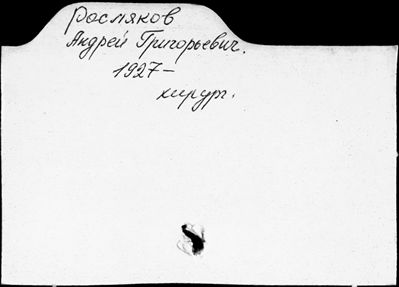 Росляков
Андрей Григорьевич.
1927-
хирург.